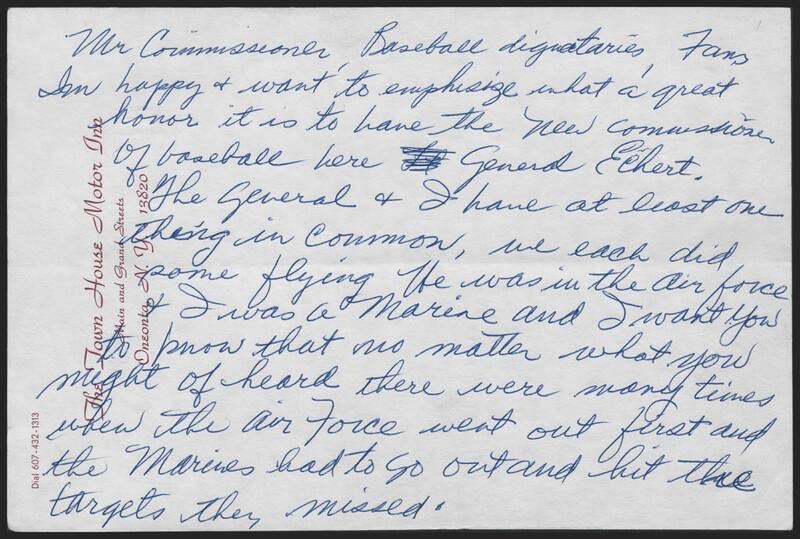 Mr Commissioner, Baseball dignataries, Fans
Im happy & want to emphisize what a great
honor it is to have the New commissioner
Of baseball here General Eckert.
The General & I have at least one
thing in common, we each did
some flying He was in the air force
& I was a Marine and I want you
to know that no matter what you
might of heard there were many times
when the Air Force went out first and
the Marines had to go out and hit the
targets they missed.
The Town House Motor Inn
Main and Grand Streets
Oneonta, N. Y. 13820
Dial 607-432-1313
1